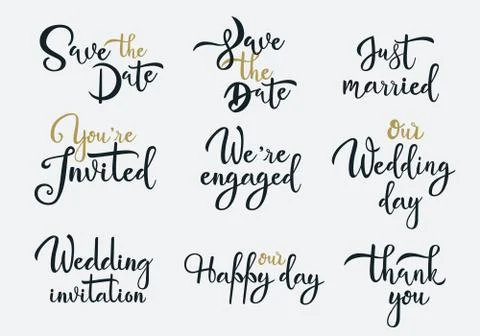 Save the
Date
Save
the
Date
Just
married
You're
Invited
We're
engaged
Our
Wedding
day
Wedding
invitation
our
Happy day
thank
you